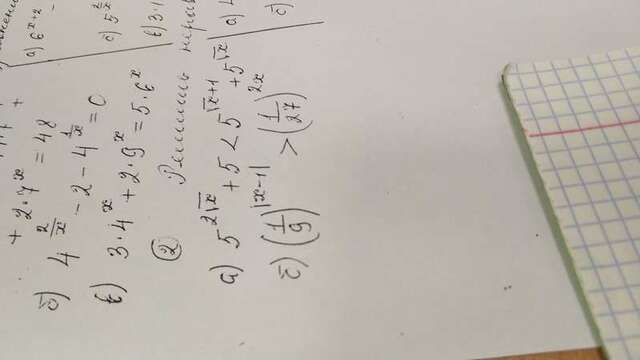 + 2·7^x = 48
б) 4^(2/x) - 2 - 4^(1/x) = 0
в) 3·4^x + 2·9^x = 5·6^x
② Решить нерав
а) 5^(2√x) + 5 < 5^(√x+1) + 5^(√x)
б) (1/9)^|x-1| > (1/27)^(2x)
а) 6^(x+2) -
б) 5^(2/x)
в) 3·1
а)
б)